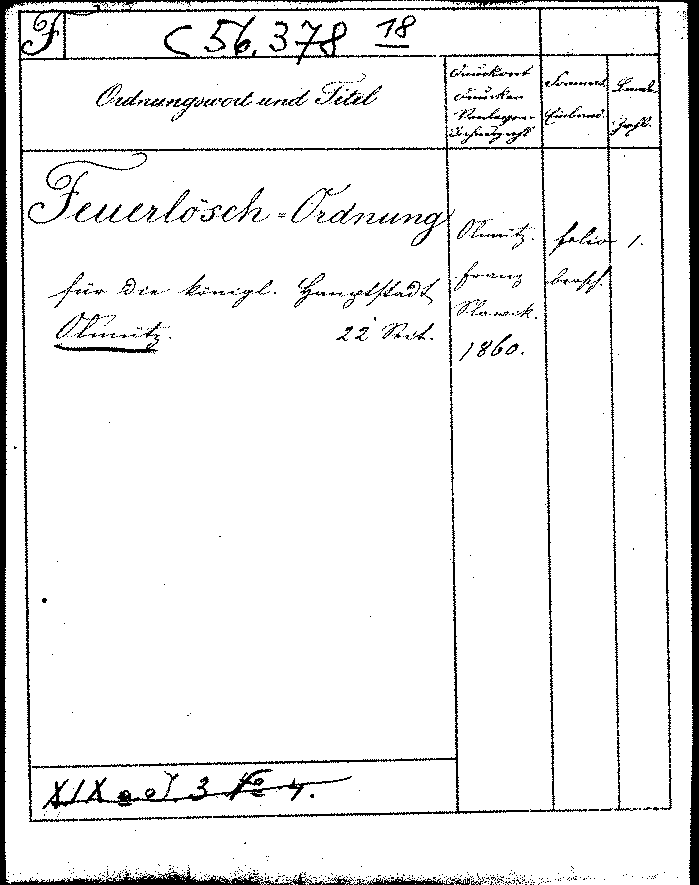 F
C 56.378 18
Ordnungswort und Titel
Druckort
Drucker
Verleger
Format
Einband
Bände
Zahl.
Feuerlösch-Ordnung
für die königl. Hauptstadt
Olmütz. 22 Seit.
Olmütz.
Franz
Slawik.
1860.
folio
brosch.
1.